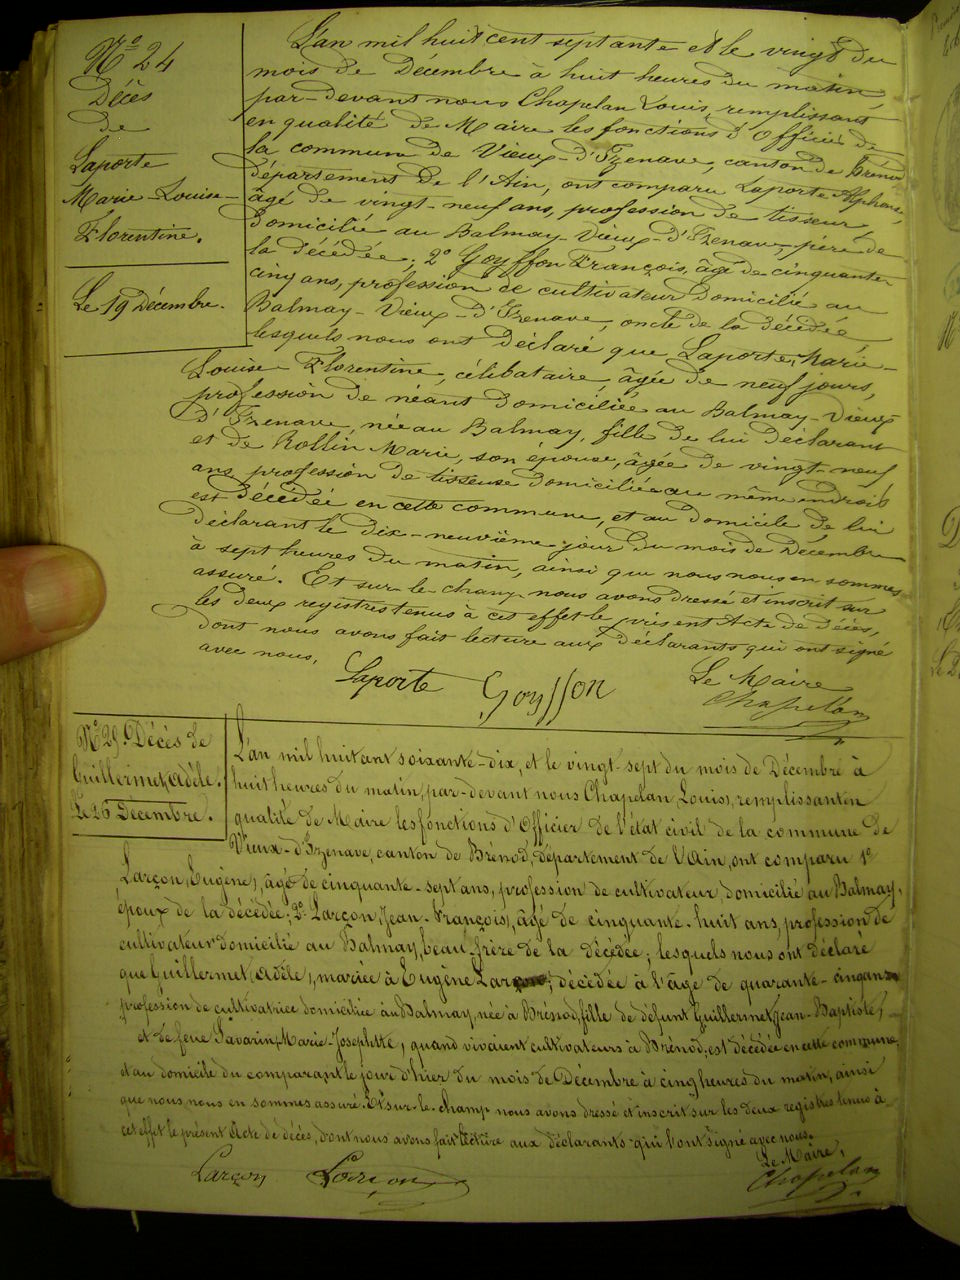 N° 24
Décès
de
Laporte
Marie-Louise-
Florentine.
Le 19 Décembre.
L'an mil huit cent septante et le vingt du
mois de Décembre à huit heures du matin
par-devant nous Chapelan Louis, remplissant
en qualité de Maire les fonctions d'Officier de
la commune de Vieux-d'Izenave, canton de Brénod
département de l'Ain, ont comparu Laporte Alphonse
âgé de vingt-neuf ans, profession de tisseur,
domicilié au Balmay-Vieux-d'Izenave, père de
la décédée; 2° Goyffon François, âgé de cinquante
cinq ans, profession de cultivateur domicilié au
Balmay-Vieux-d'Izenave, oncle de la décédée
lesquels nous ont déclaré que Laporte, Marie-
Louise Florentine, célibataire, âgée de neuf jours,
profession de néant domiciliée au Balmay-Vieux
d'Izenave, née au Balmay, fille de lui déclarant
et de Rollin Marie, son épouse, âgée de vingt-neuf
ans profession de tisseuse domiciliée au même endroit
est décédée en cette commune, et au domicile de lui
déclarant le dix-neuvième jour du mois de Décembre
à sept heures du matin, ainsi que nous nous en sommes
assuré. Et sur-le-champ nous avons dressé et inscrit sur
les deux registres tenus à cet effet le présent Acte de décès,
dont nous avons fait lecture aux déclarants qui ont signé
avec nous.
Laporte Goyffon Le Maire
Chapelan
N° 25. Décès de
Guillermet, Adèle.
Le 26 Décembre.
L'an mil huit cent soixante-dix, et le vingt-sept du mois de Décembre à
huit heures du matin, par-devant nous Chapelan Louis, remplissant en
qualité de Maire les fonctions d'Officier de l'état civil de la commune de
Vieux-d'Izenave, canton de Brénod, département de l'Ain, ont comparu 1°
Larçon, Eugène, âgé de cinquante-sept ans, profession de cultivateur, domicilié au Balmay,
époux de la décédée; 2° Larçon, Jean-François, âgé de cinquante-huit ans, profession de
cultivateur domicilié au Balmay, beau-frère de la décédée; lesquels nous ont déclaré
que Guillermet, Adèle, mariée à Eugène Larçon, décédée à l'âge de quarante-cinq ans
profession de cultivatrice domiciliée au Balmay, née à Brénod, fille de défunt Guillermet, Jean-Baptiste,
et de feue Savarin, Marie-Josephette, quand vivaient cultivateurs à Brénod, est décédée en cette commune,
et au domicile du comparant le jour d'hier du mois de Décembre à cinq heures du matin, ainsi
que nous nous en sommes assuré. Et sur-le-champ nous avons dressé et inscrit sur les deux registres tenus à
cet effet le présent Acte de décès, dont nous avons fait lecture aux déclarants qui l'ont signé avec nous.
Le Maire,
Larçon Larçon Chapelan